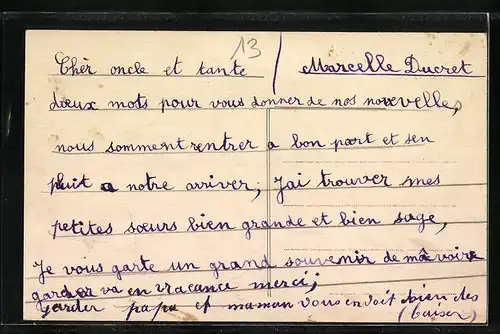 13
Chèr oncle et tante / Marcelle Ducret
deux mots pour vous donner de nos nouvelles,
nous somment rentrer a bon port et sen
pluit a notre arriver, J'ai trouver mes
petites sœurs bien grande et bien sage,
Je vous garte un grand souvenir de ma voire
garder va en vracance merci;
Garder papa et maman vous envoit bien des
(baiser)